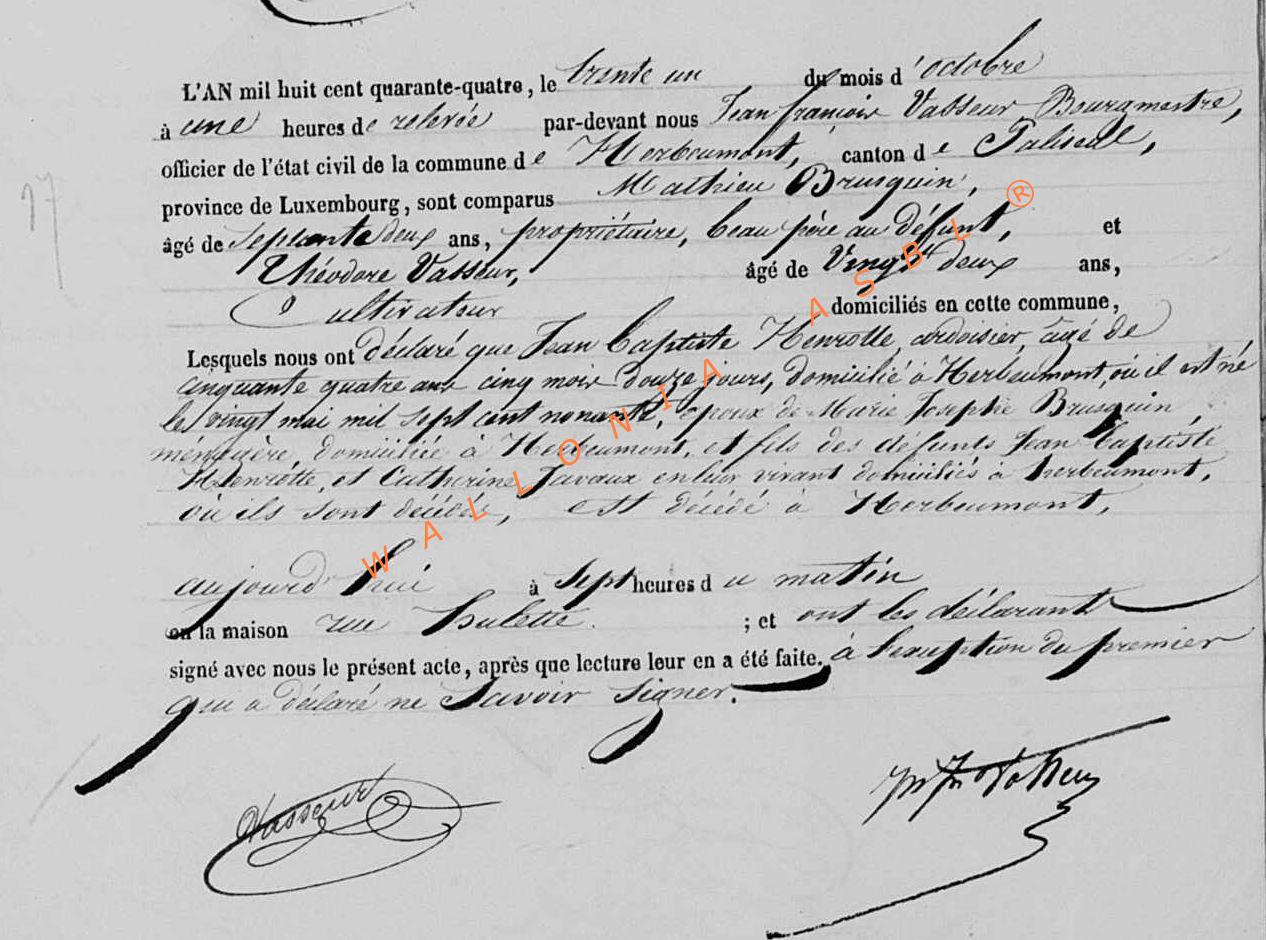 L'AN mil huit cent quarante-quatre, le trente un du mois d'octobre
à une heures de relevée par-devant nous Jean françois Vasseur Bourgmestre,
officier de l'état civil de la commune de Herbeumont, canton de Paliseul,
province de Luxembourg, sont comparus Mathieu Brusquin,
âgé de septante deux ans, propriétaire, beau père au défunt, et
Théodore Vasseur, âgé de Vingt deux ans,
Cultivateur domiciliés en cette commune,
Lesquels nous ont déclaré que Jean Baptiste Henrotte, ardoisier, âgé de
cinquante quatre ans cinq mois douze jours, domicilié à Herbeumont, où il est né
le vingt mai mil sept cent nonante, époux de Marie Josephe Brusquin,
ménagère, domiciliée à Herbeumont, et fils des défunts Jean Baptiste
Henrotte, et Catherine Javaux en leur vivant domiciliés à herbeumont,
où ils sont décédés, est décédé à Herbeumont,
aujourd'hui à sept heures du matin
en la maison rue hulette ; et ont les déclarants
signé avec nous le présent acte, après que lecture leur en a été faite. à l'exception du premier
qui a déclaré ne savoir signer.
Vasseur
Vasseur
17
WALLONIA ASBL ®